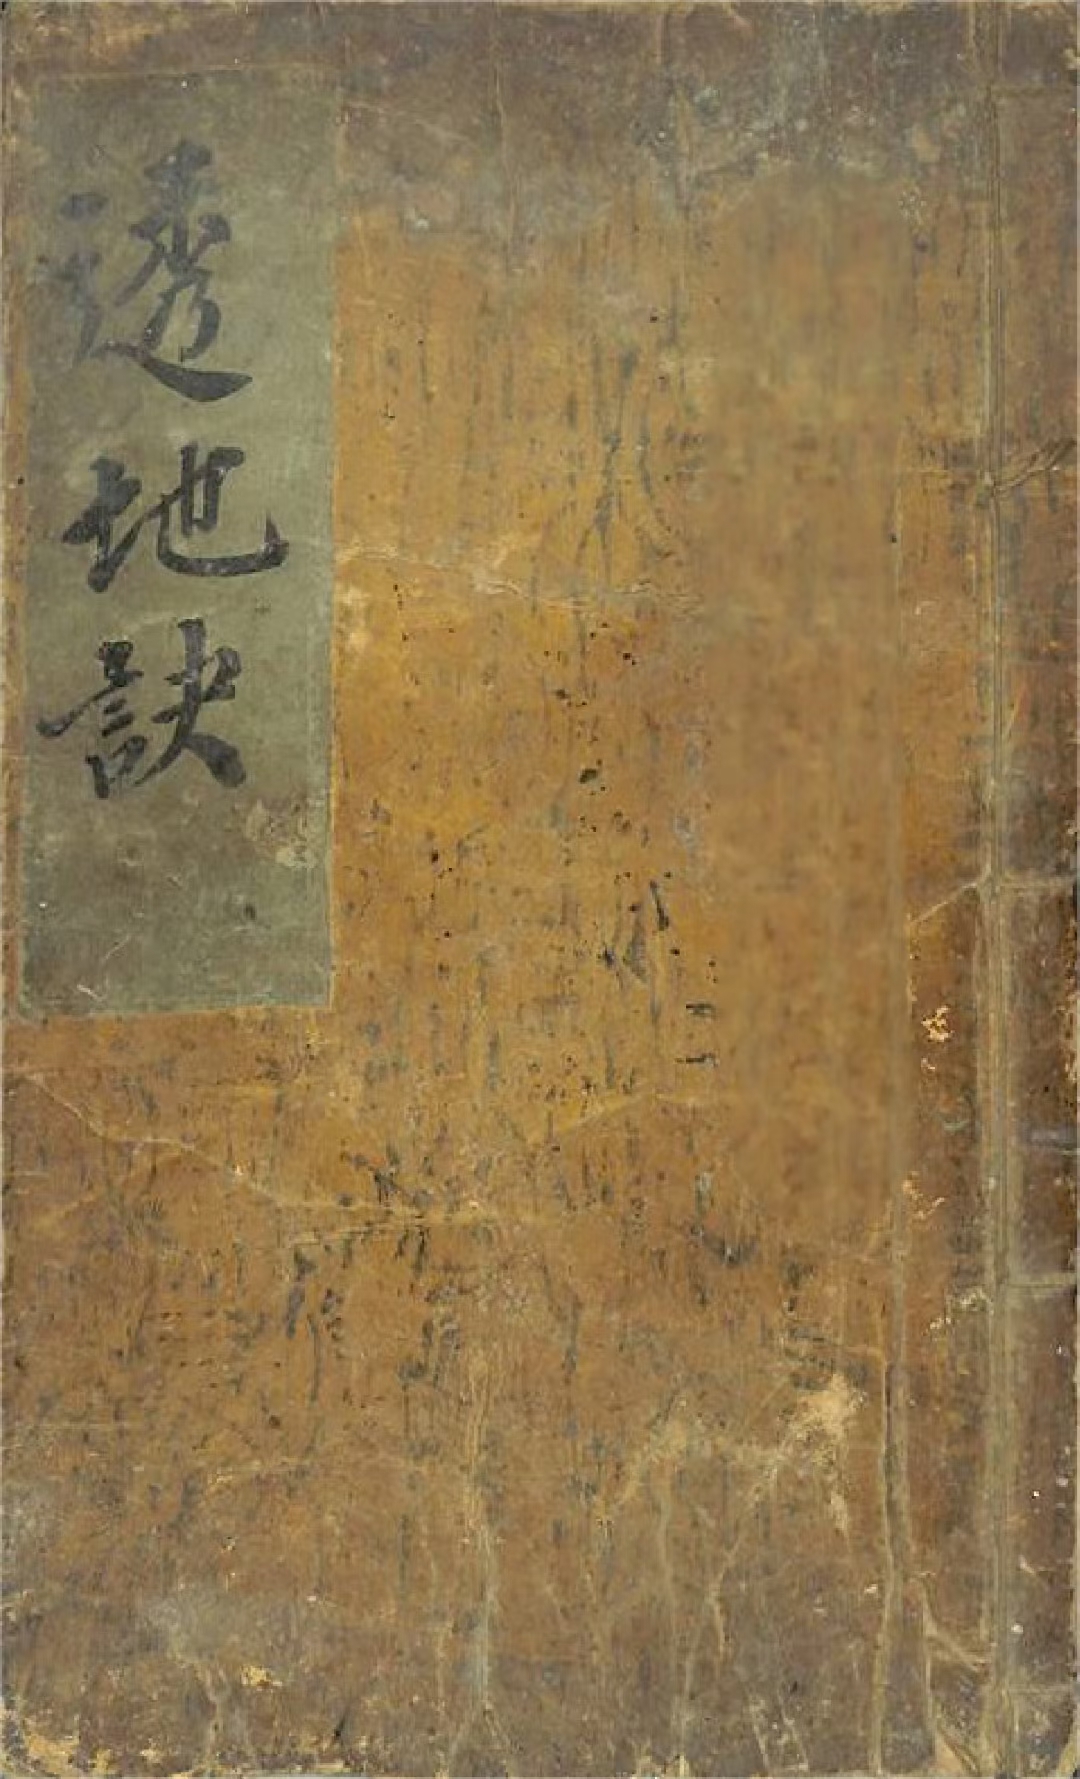 透地訣